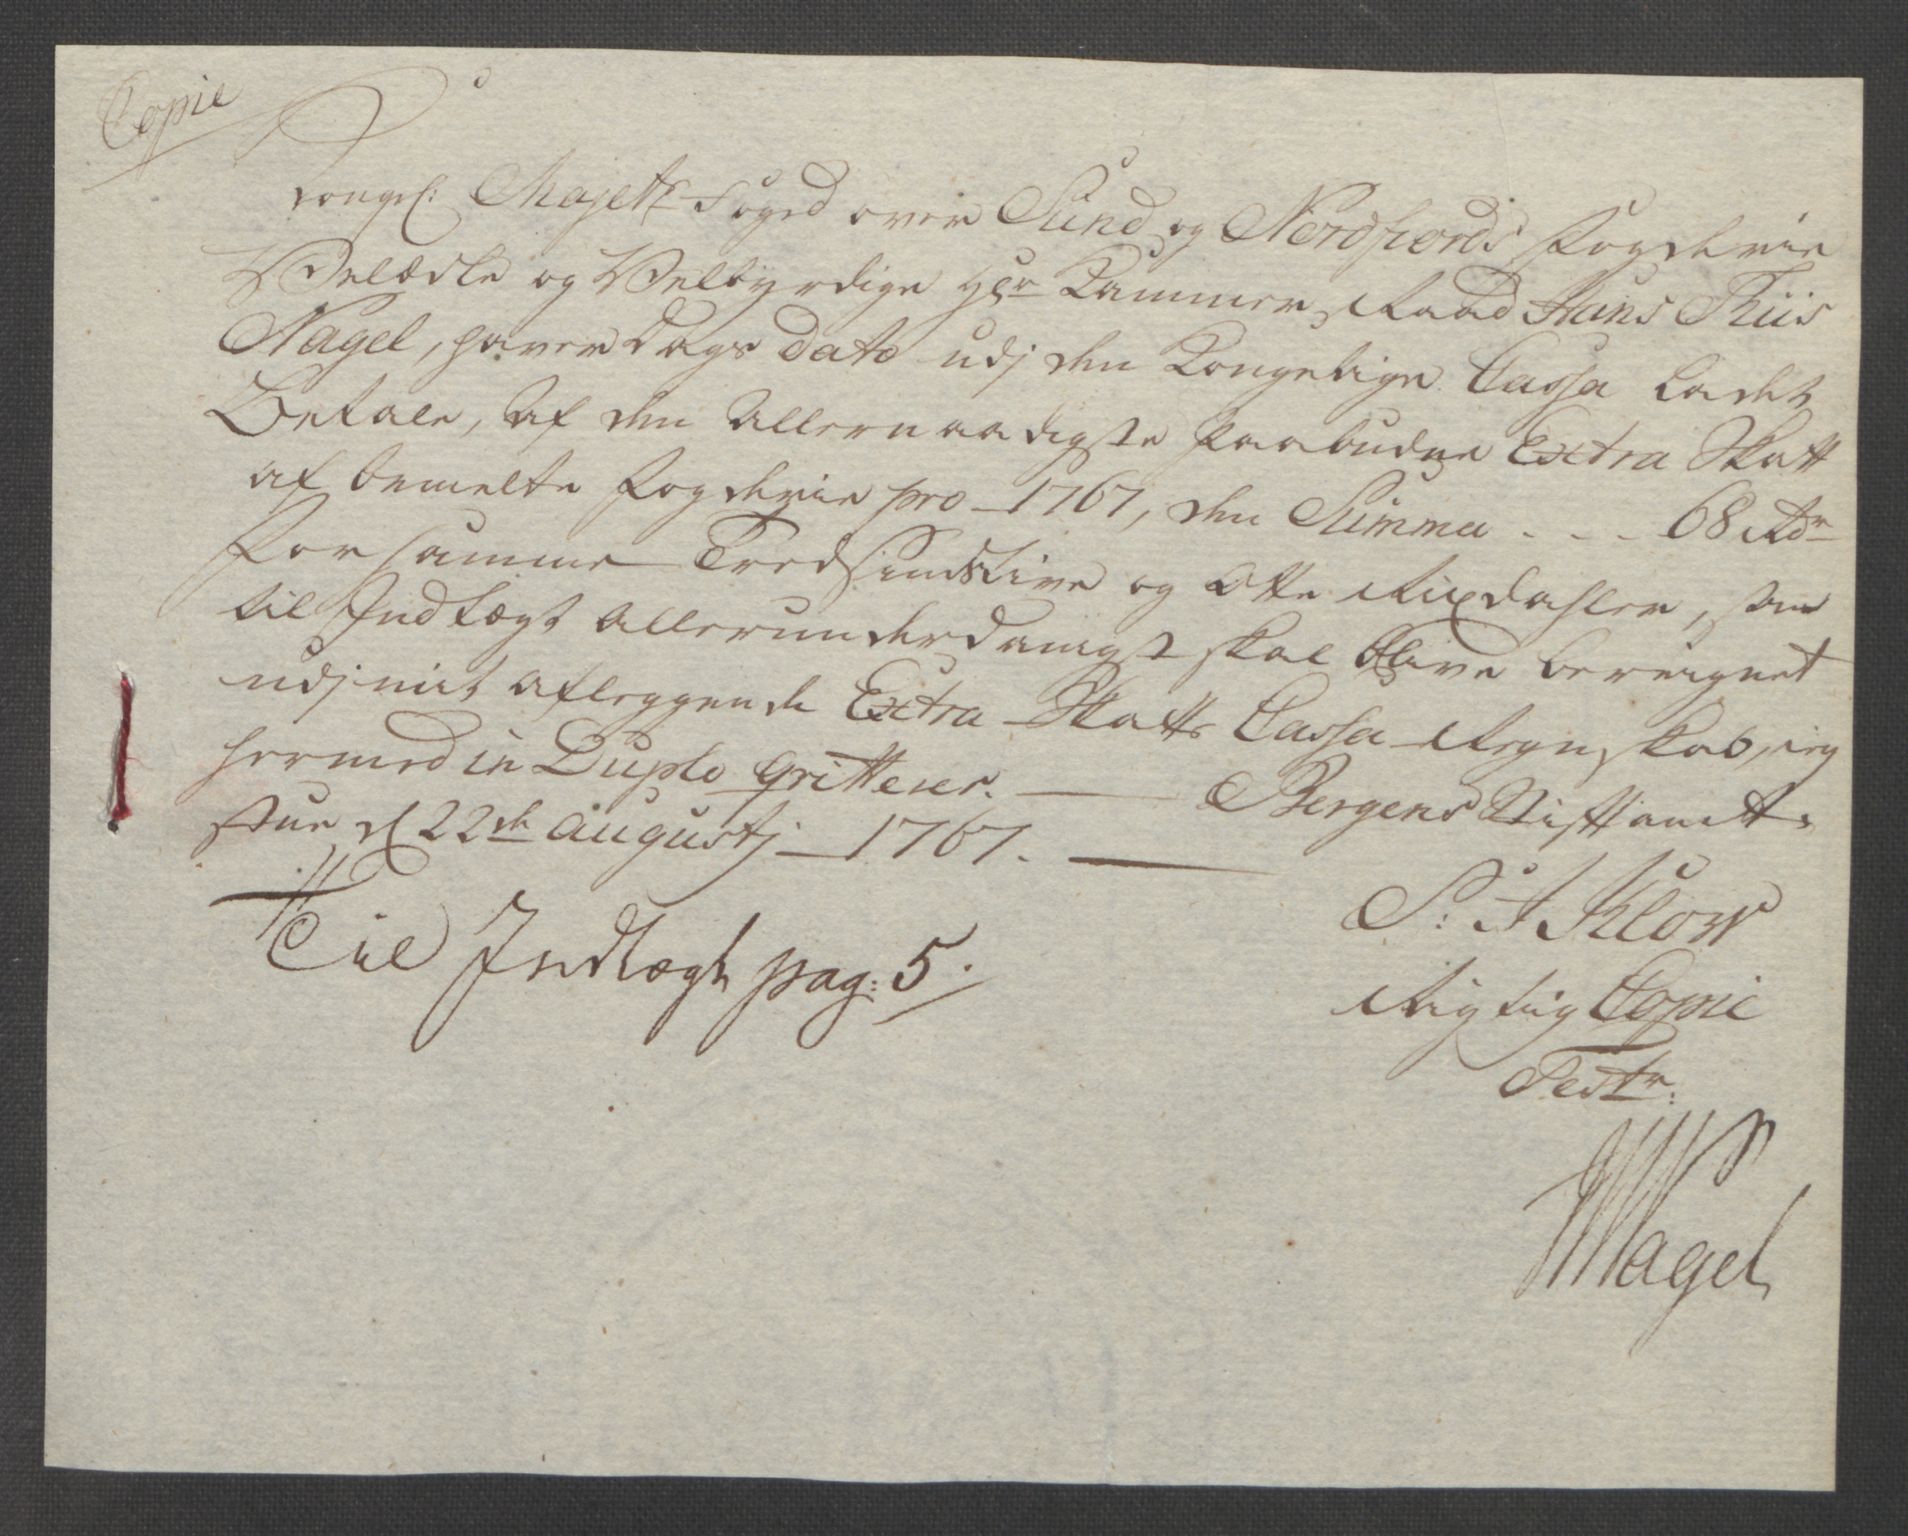 Copie
Kongel: Majets Foged over Sund og Nordfiords Fogderie
Velædle og Velbyrdige Hr Kammer Raad Hans Thiis
Nagel, haver Dags Dato udj den Kongelige Cassa ladet
Betale, Af den Allernaadigste Paabudne Extra Skatt
af bemelte Fogderie pro 1767, den Summa - - - 68 Rdr
For samme Tredsindstive og Otte Rixdahler, som
til Indtægt Allerunderdanigst skal blive bereignet
udj mit aflæggende Extra Skatts Cassa Regnskab, ieg
hermed in Duplo qvitterer. — Bergens Stiftamts
stue d 22de Augustj 1767. —
S: A Klow
Til Indtægt pag: 5.
Rigtig Copie
Testr:
Nagel